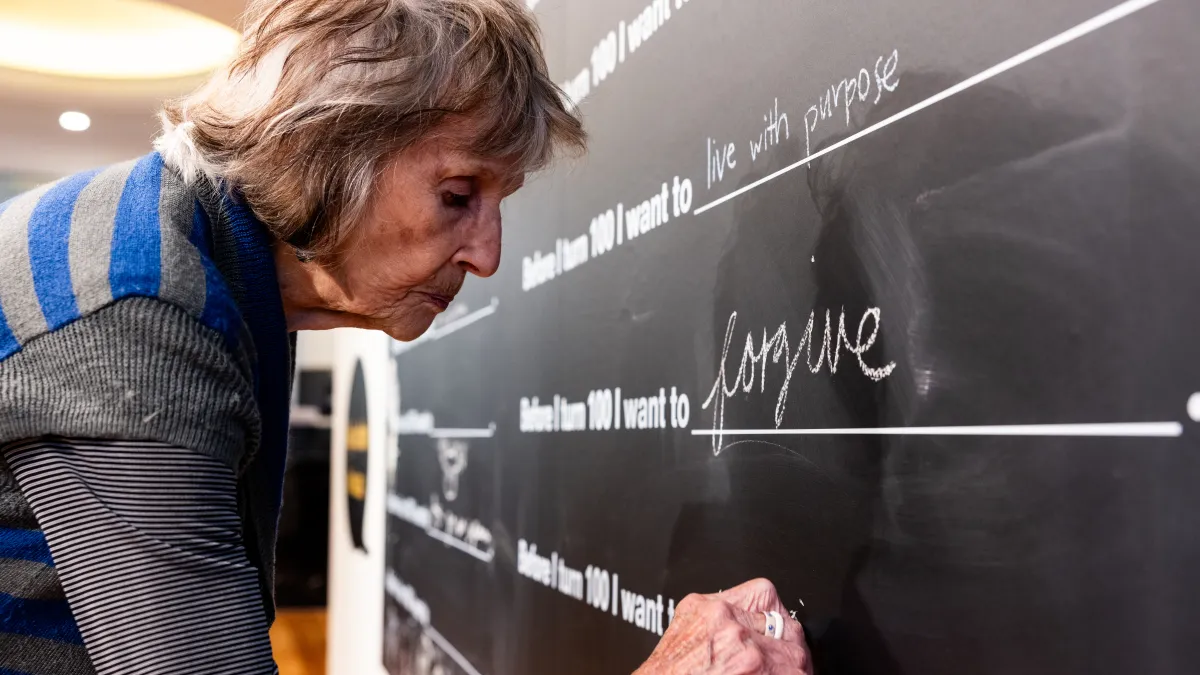 turn 100 I want
Before I turn 100 I want to live with purpose
Before I turn 100 I want to forgive
Before I turn 100 I want